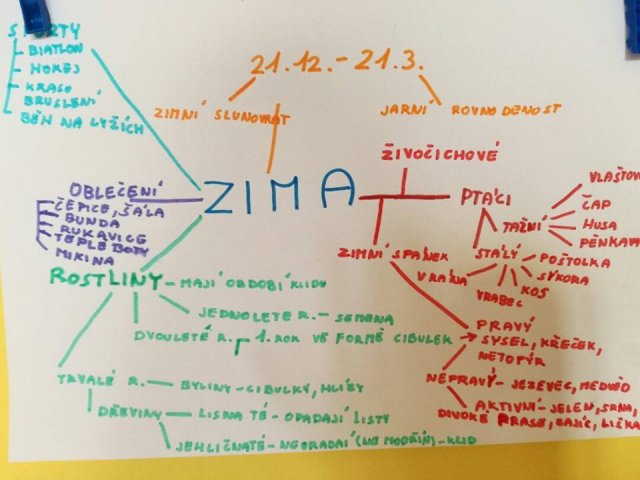 SPORTY
BIATLON
HOKEJ
KRASO
BRUSLENÍ
BĚH NA LYŽÍCH
21.12. - 21.3.
ZIMNÍ SLUNOVRAT
JARNÍ ROVNODENOST
ZIMA
OBLEČENÍ
ČEPICE, ŠÁLA
BUNDA
RUKAVICE
TEPLÉ BOTY
MIKINA
ŽIVOČICHOVÉ
PTÁCI
TAŽNÍ
VLAŠTOV
ČAP
HUSA
PĚNKAV
STÁLÝ
POŠTOLKA
SÝKORA
KOS
VRABEC
VRÁNA
ZIMNÍ SPÁNEK
PRAVÝ
SYSEL, KŘEČEK,
NETOPÝR
NEPRAVÝ - JEZEVEC, MEDVĚD
AKTIVNÍ - JELEN, SRNA,
DIVOKÉ PRASE, ZAJÍC, LIŠKA
ROSTLINY - MAJÍ OBDOBÍ KLIDU
JEDNOLETÉ R. - SEMENA
DVOULETÉ R. 1. ROK VE FORMĚ CIBULEK
TRVALÉ R. - BYLINY - CIBULKY, HLÍZY
DŘEVINY - LISNATÉ - OPADAJÍ LISTY
JEHLIČNATÉ - NEOPADAJÍ (NE MODŘÍN) - KLID